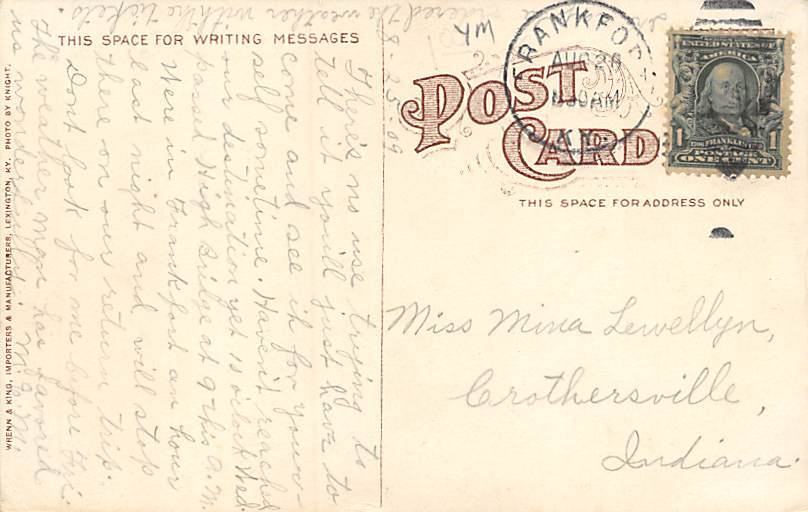 THIS SPACE FOR WRITING MESSAGES
There's no use trying to
tell it you'll just have to
come and see it for your-
self sometime. Haven't reached
our destination yet 10 o'clock Wed.
passed High Bridge at 9 this A.M.
Were in Frankfort an hour
last night and will stop
there on our return trip.
Dont look for me before Fri.
The weather man has favored
us wonderfully. M.E.M.
ordered the weather with the tickets.
8 25-09
YM
WRENN & KING, IMPORTERS & MANUFACTURERS, LEXINGTON, KY. PHOTO BY KNIGHT.
POST
CARD
FRANKFORT
AUG 26
30AM
KY.
UNITED STATES OF
AMERICA
1
FRANKLIN
1
ONE CENT
THIS SPACE FOR ADDRESS ONLY
Miss Mina Lewellyn,
Crothersville,
Indiana.